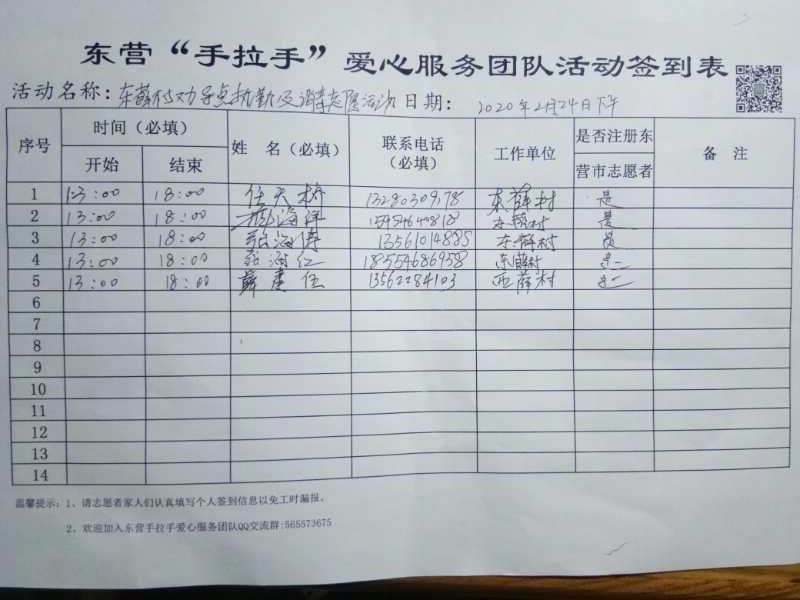 东营“手拉手”爱心服务团队活动签到表
活动名称：东薛村劝导点执勤及消毒志愿活动 日期： 2020年2月24日下午
序号 时间（必填） 姓 名（必填） 联系电话（必填） 工作单位 是否注册东营市志愿者 备 注
开始 结束
1 13:00 18:00 任天桥 13280309178 东薛村 是
2 13:00 18:00 海洋 东薛村 是
3 13:00 18:00 张海涛 13561014885 东薛村 是
4 13:00 18:00 红 18554686958 东薛村 是
5 13:00 18:00 薛建伍 13562284103 西薛村 是
6
7
8
9
10
11
12
13
14
温馨提示：1、请志愿者家人们认真填写个人签到信息以免工时漏报。
2、欢迎加入东营手拉手爱心服务团队QQ交流群:565573675